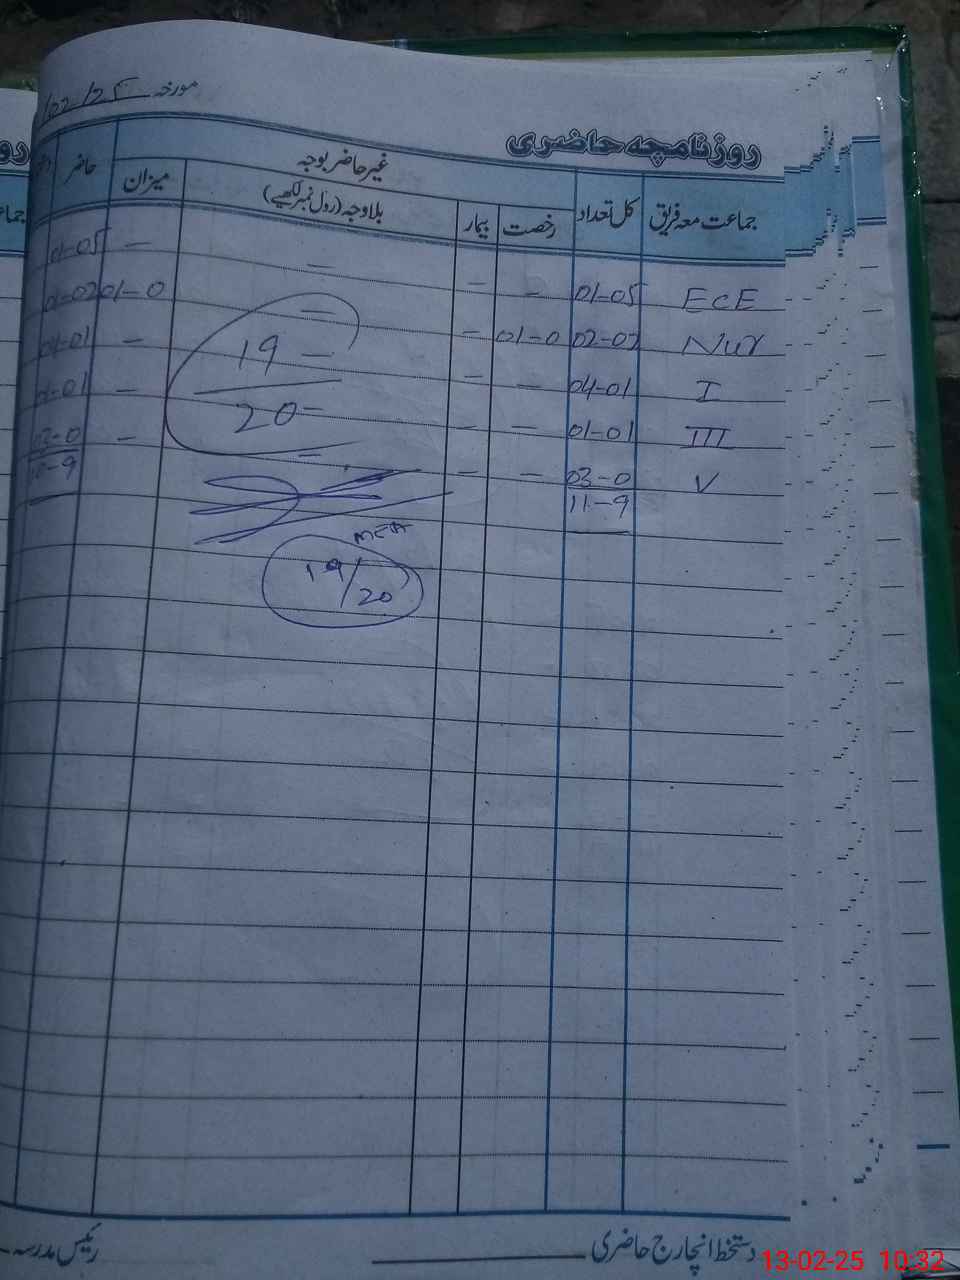 مورخہ /02/25
روزنامچہ حاضری
جماعت معہ فریق کل تعداد غیر حاضر بوجہ حاضر
رخصت بیمار بلاوجہ (رول نمبر لکھیے) میزان
ECE 01-05 — — — — 01-05
Nur 02-02 01-0 — — 01-0 01-02
I 04-01 — — — — 04-01
III 01-01 — — — — 01-01
V 03-0 — — — — 03-0
11-9 10-9
19
20
MEA
19/20
دستخط انچارج حاضری رئیس مدرسہ
13-02-25 10:32